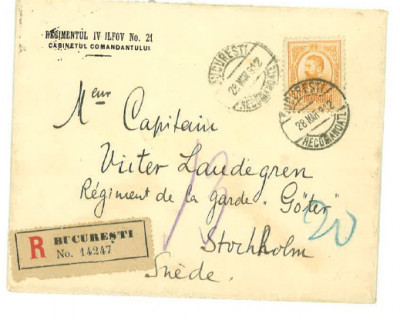 REGIMENTUL IV ILFOV No. 21
CABINETUL COMANDANTULUI
BUCUREȘTI
28 MAR 912
RECOMANDATE
BUCUREȘTI
28 MAR 912
RECOMANDATE
Meur Capitain
Victer Laudegren
Régiment de la garde „Göter"
Stockholm
Suède.
13
20
R
BUCUREȘTI
No. 14247